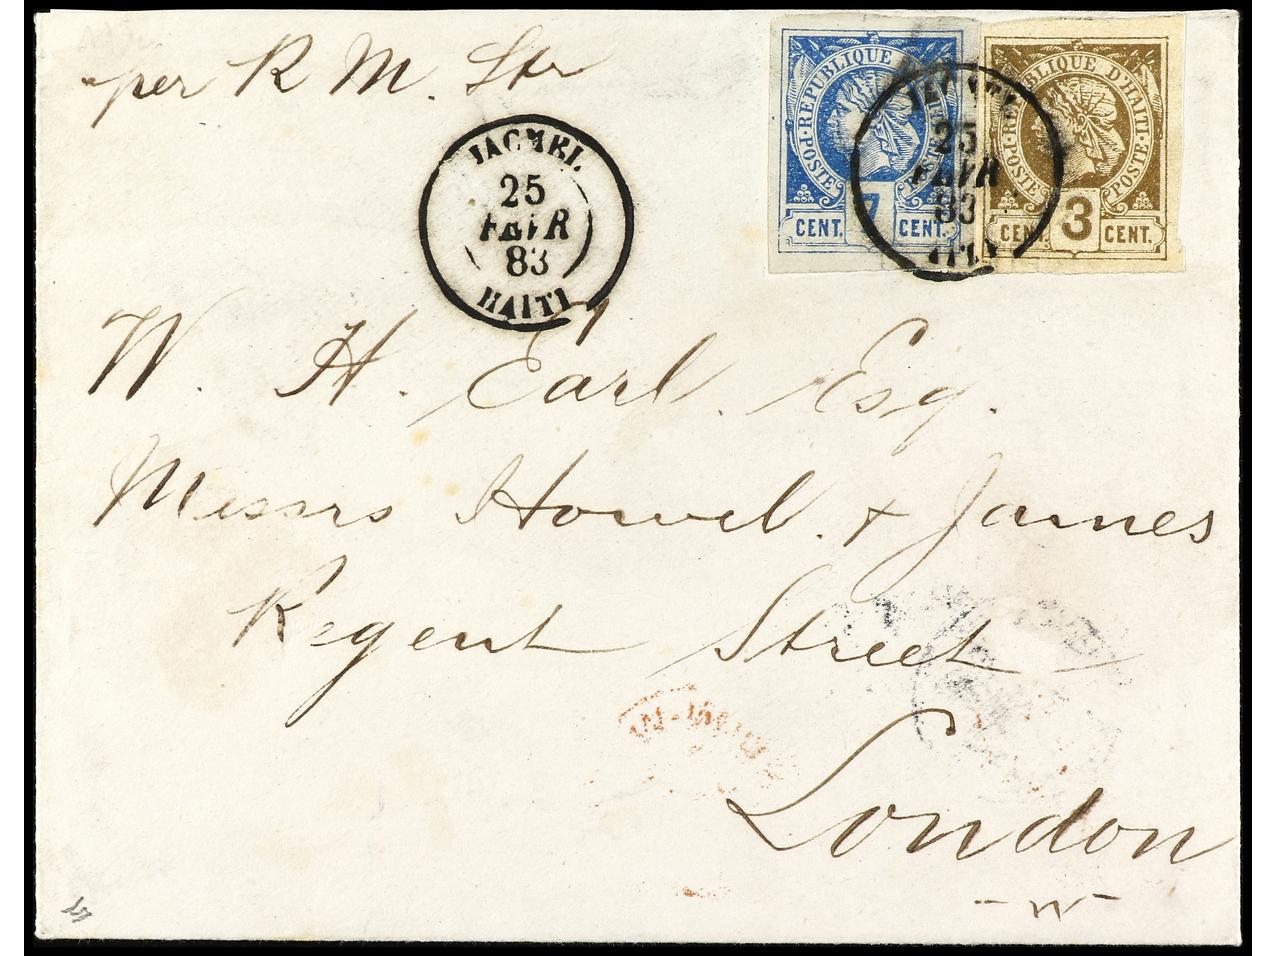 per R M. Str
REPUBLIQUE
POSTE
CENT. 7 CENT.
REPUBLIQUE D'HAITI
POSTE POSTE
CENT. 3 CENT.
JACMEL
25
FEVR
83
HAITI
JACMEL
25
FEVR
83
HAITI
W. H. Earl. Esq.
Messrs Howel. & James
Regent Street
London
- W -